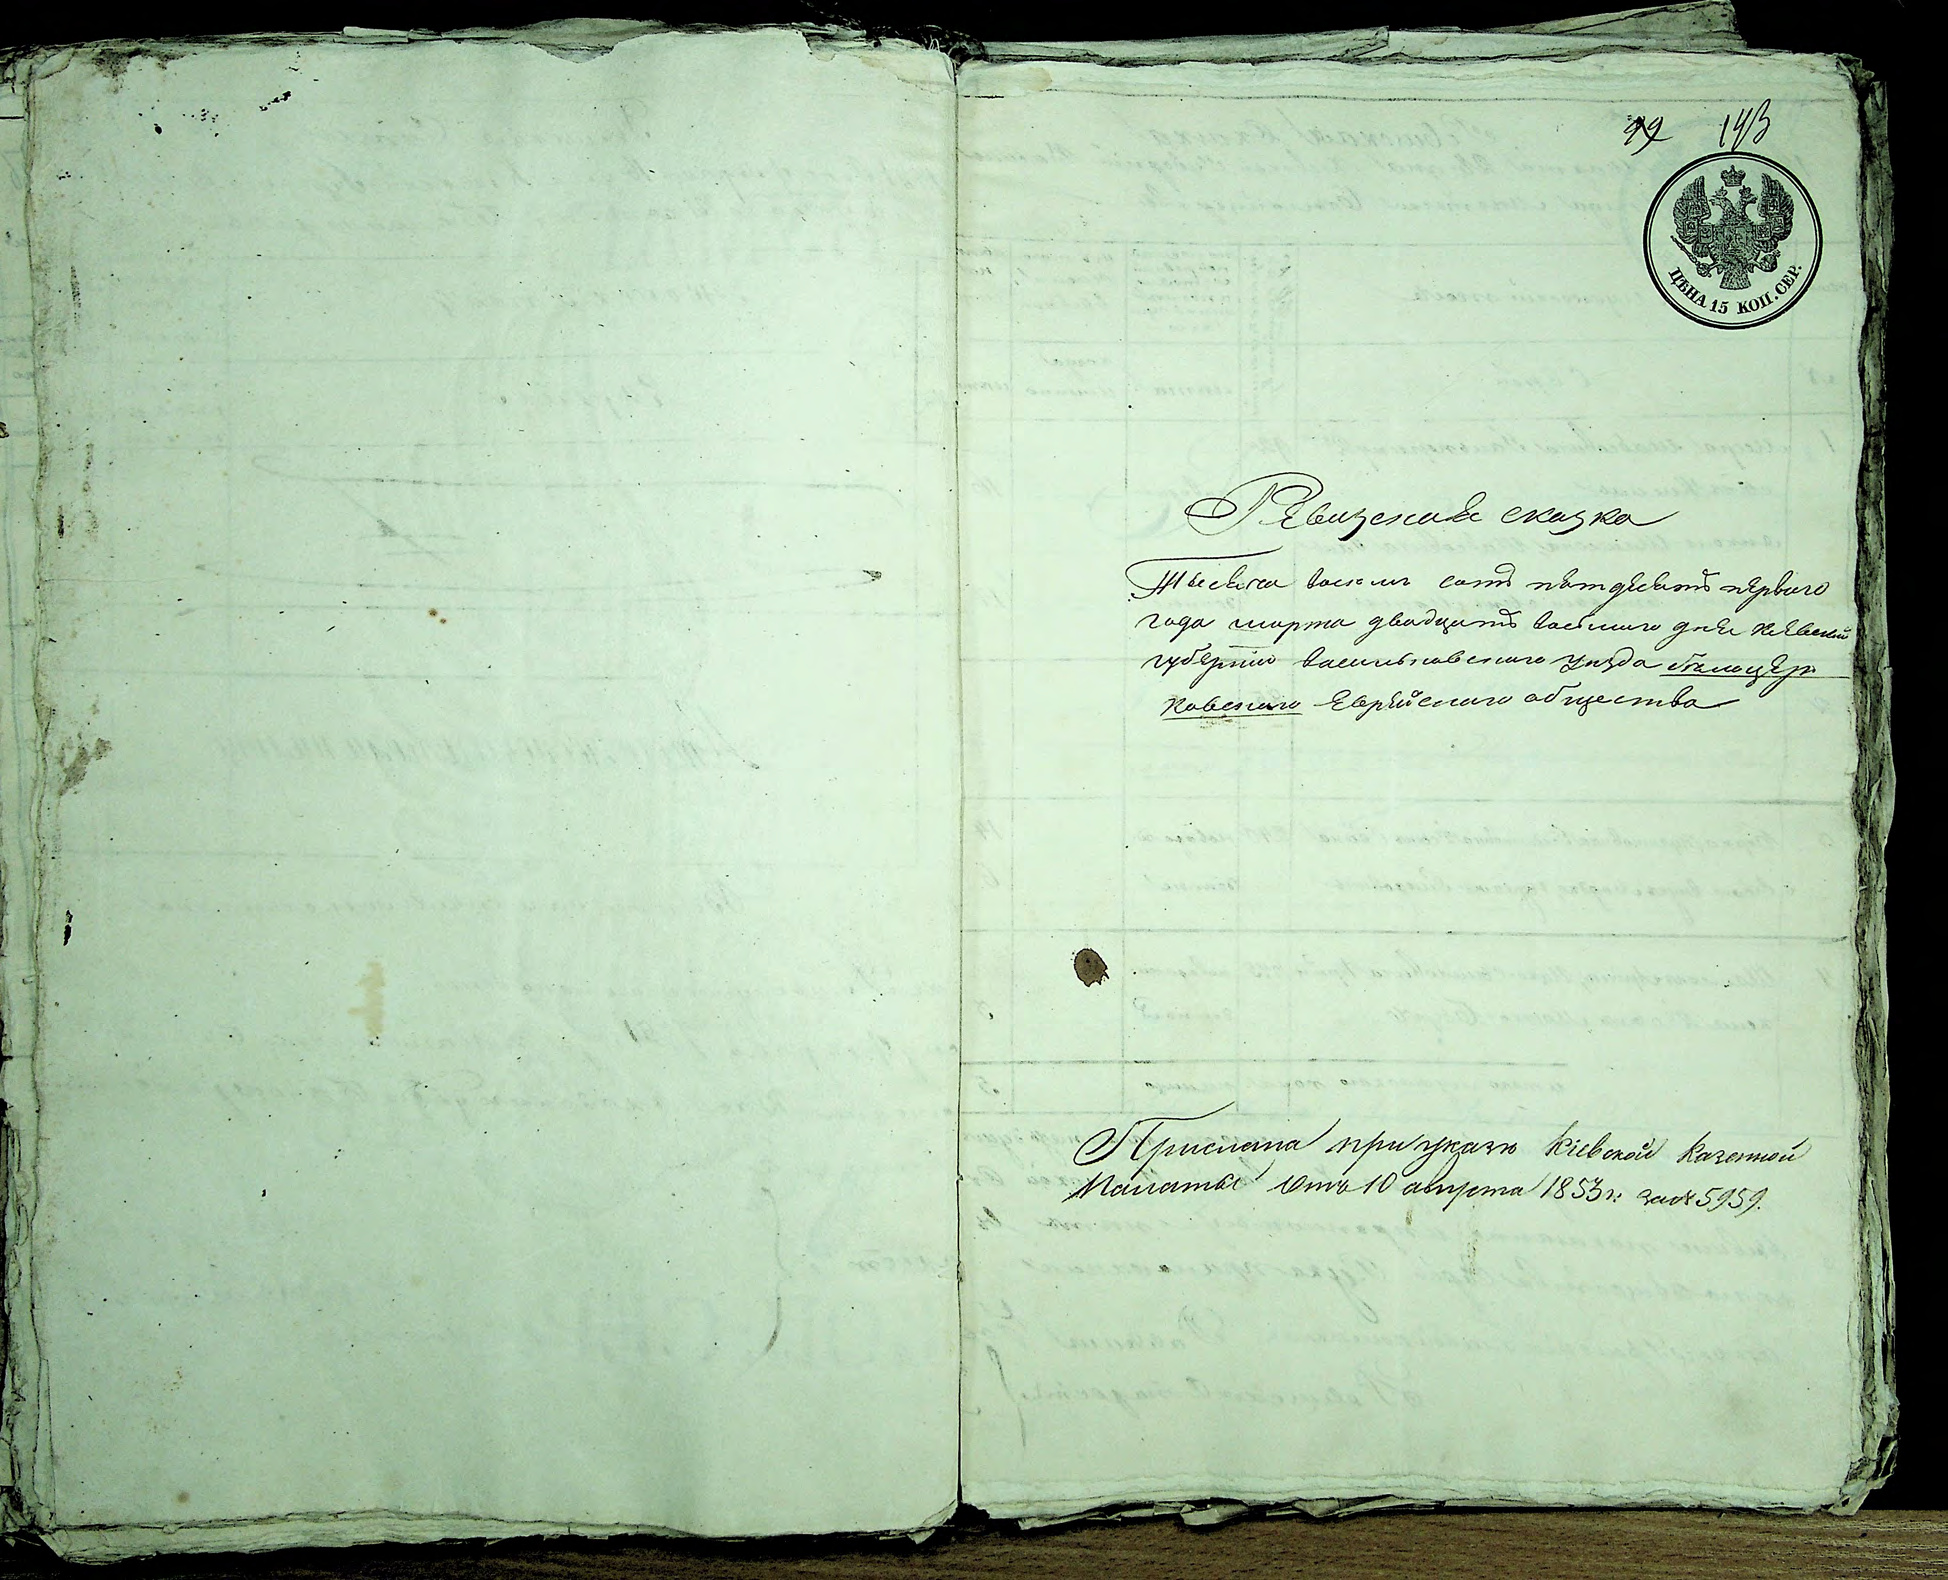 99 143
ЦѢНА 15 КОП. СЕР.
Ревизская сказка
Тысяча восемь сотъ пятдесятъ первого
года марта двадцать восьмаго дня Кіевской
губерніи Васильковского уѣзда бѣлоцер
ковского Еврейского общества
Прислана при указѣ Кіевской Казенной
Палаты отъ 10 августа 1853 г: за № 5959.